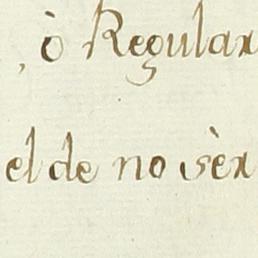 , ò Regular
el de no sèr